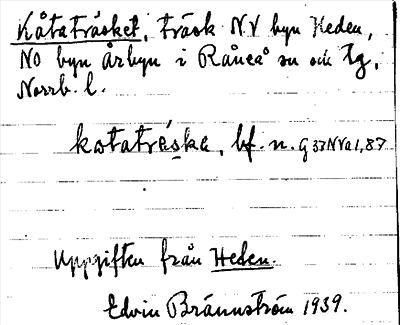 Kåtaträsket, träsk NV byn Heden,
NO byn Årbyn i Råneå sn och tg,
Norrb. l.
katatrèska, bf. n. G33NVa1,87
Uppgiften från Heden.
Edvin Brännström 1939.